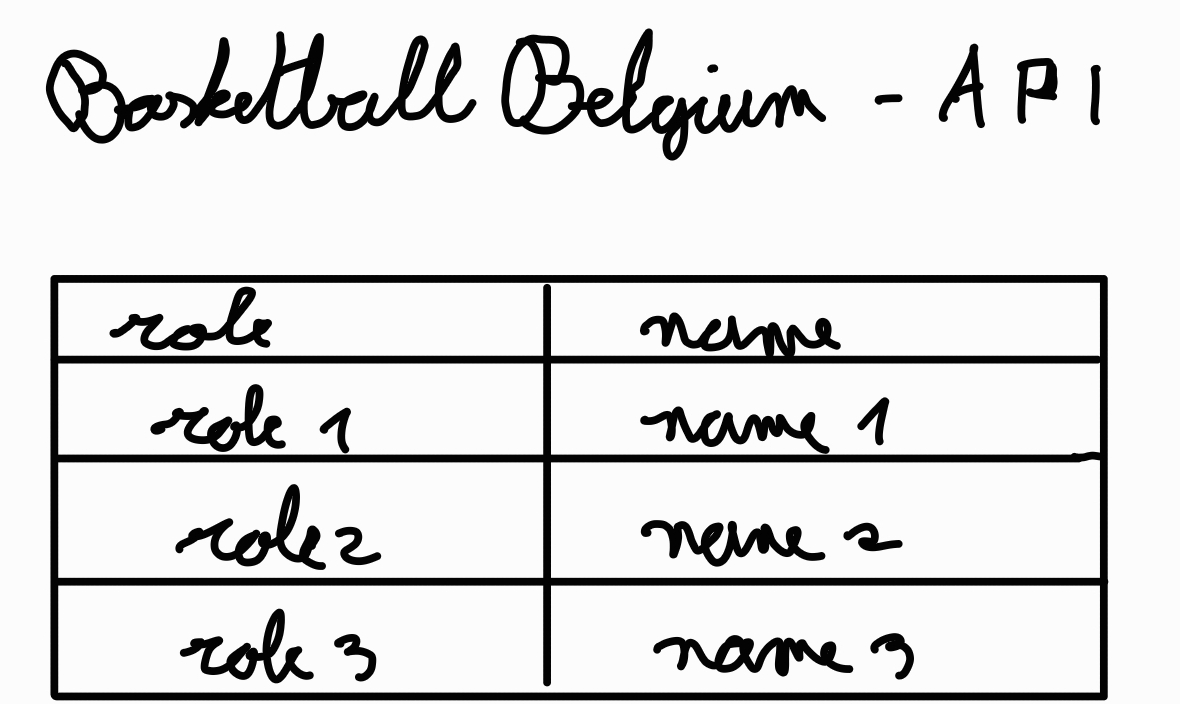 Basketball Belgium - API
role name
role 1 name 1
role 2 name 2
role 3 name 3